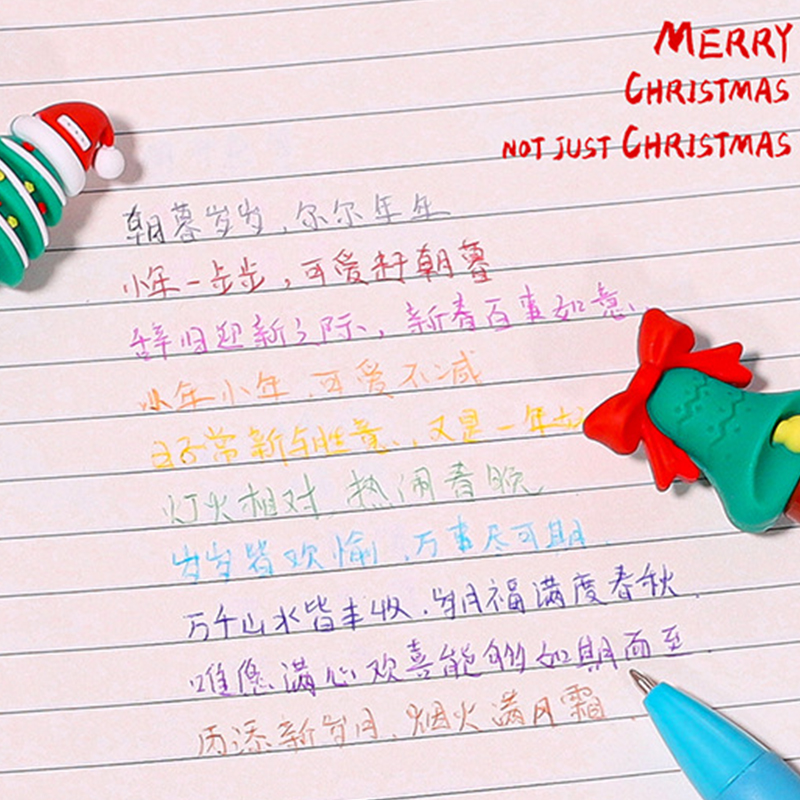 MERRY
CHRISTMAS
NOT JUST CHRISTMAS
朝暮岁岁,尔尔年年
小年一步步,可爱赶朝暮
辞旧迎新之际,新春百事如意
小年小年,可爱不减
日子常新与胜意,又是一年
灯火相对,热闹春晚
岁岁皆欢愉,万事尽可期
万千山水皆丰收,岁月福满度春秋
唯愿满心欢喜能够如期而至
历添新岁月,烟火满风霜